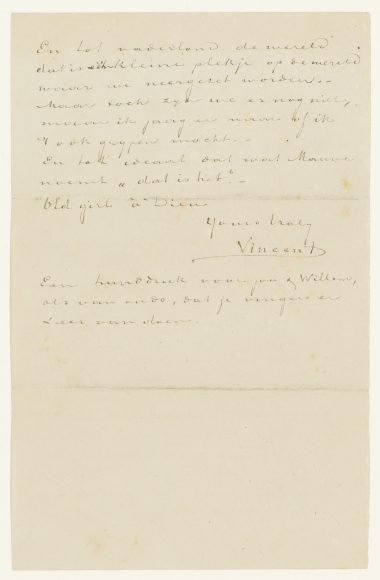 En tot vaderland de wereld
dat is elk kleine plekje op de wereld
waar we neergezet worden.-
Maar toch zijn we er nog niet,
maar ik jaag er naar of ik
't ook grijpen mocht.-
En tot ideaal dat wat Mauve
noemt „dat is het".-
Old girl à Dieu
Yours truly
Vincent
Een handdruk voor jou & Willem,
als van ouds, dat je vingers er
zeer van doen.